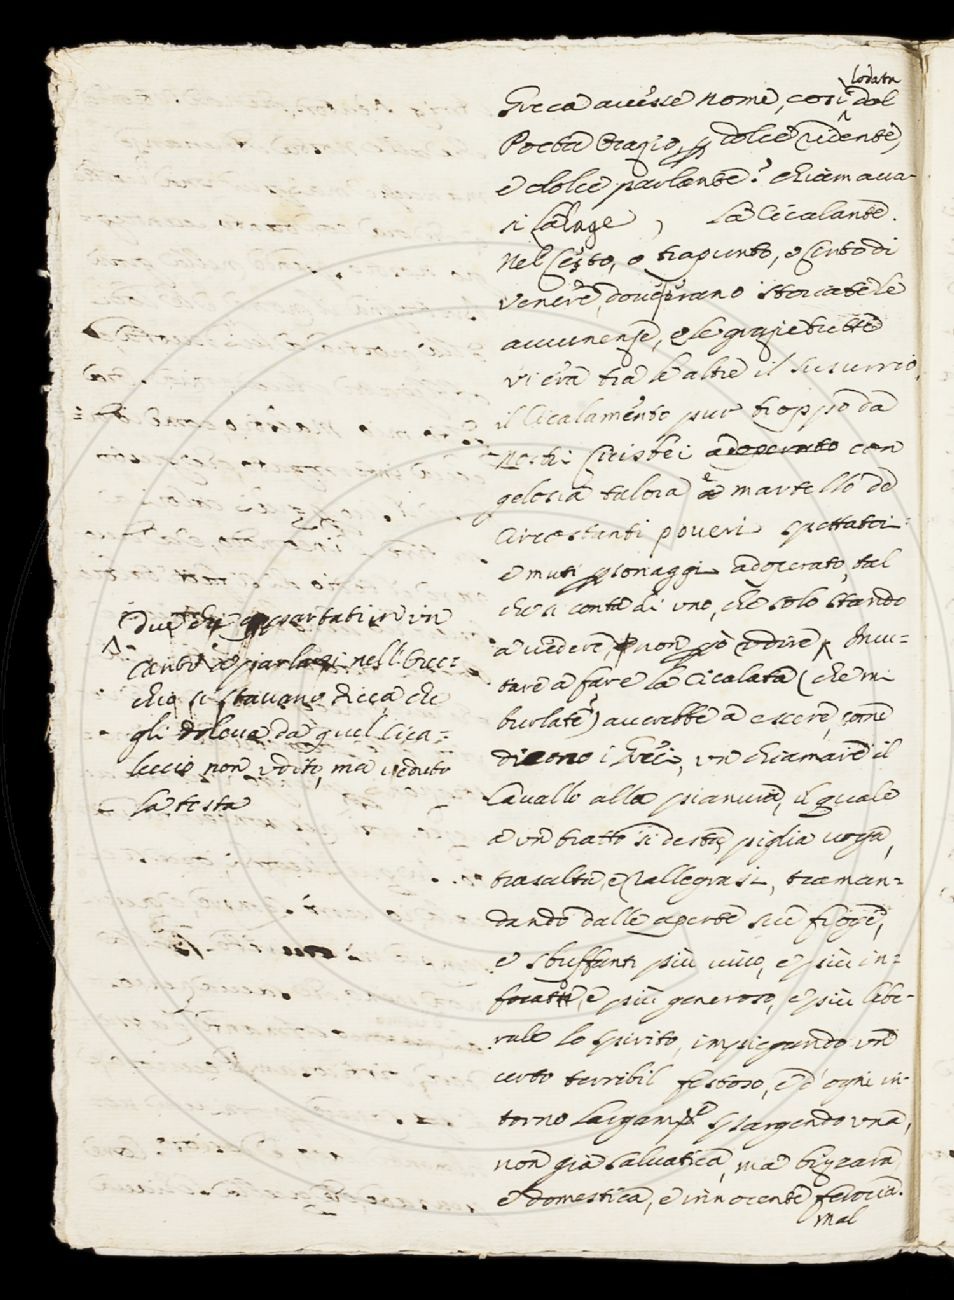 lodata
Greca avesse nome, così dal
Poeta
dolce ridente,
e dolce parlante? chiamava-
si Lalage, la Cicalante.
Nel Cesto, o trapunto, e Cinto di
Venere, dove erano
avvenenze, e le grazie tutte
vi era tra le altre il susurrio,
il Cicalamento pur troppo da
nostri Cicisbei adoperato con
gelosia talora e martello de
Circostanti poveri spettatori
e muti personaggi adoperato, tal
che si conta di uno, che solo stando
a vedere non udire, Invi-
tare a fare la Cicalata (che mi
burlate?) averebbe a essere, come
dicono i Greci, un chiamare il
Cavallo alla pianura, il quale
a un tratto si desta, piglia voga,
trasalta, e rallegrasi, traman-
dando dalle aperte sue froge,
e sbuffanti più vivo, e più in-
focato, e più generoso, e più libe-
rale lo spirito, impiegando un
certo terribil festoso, e d'ogni in-
torno spargendo una,
non già salvatica, ma bizzarra
e domestica, e innocente ferocia.
mal
due che appartati in un
canto a parlarsi nell'orec-
chio si stavano dicea che
gli doleva da quel Cica-
leccio non udito, ma veduto
la testa